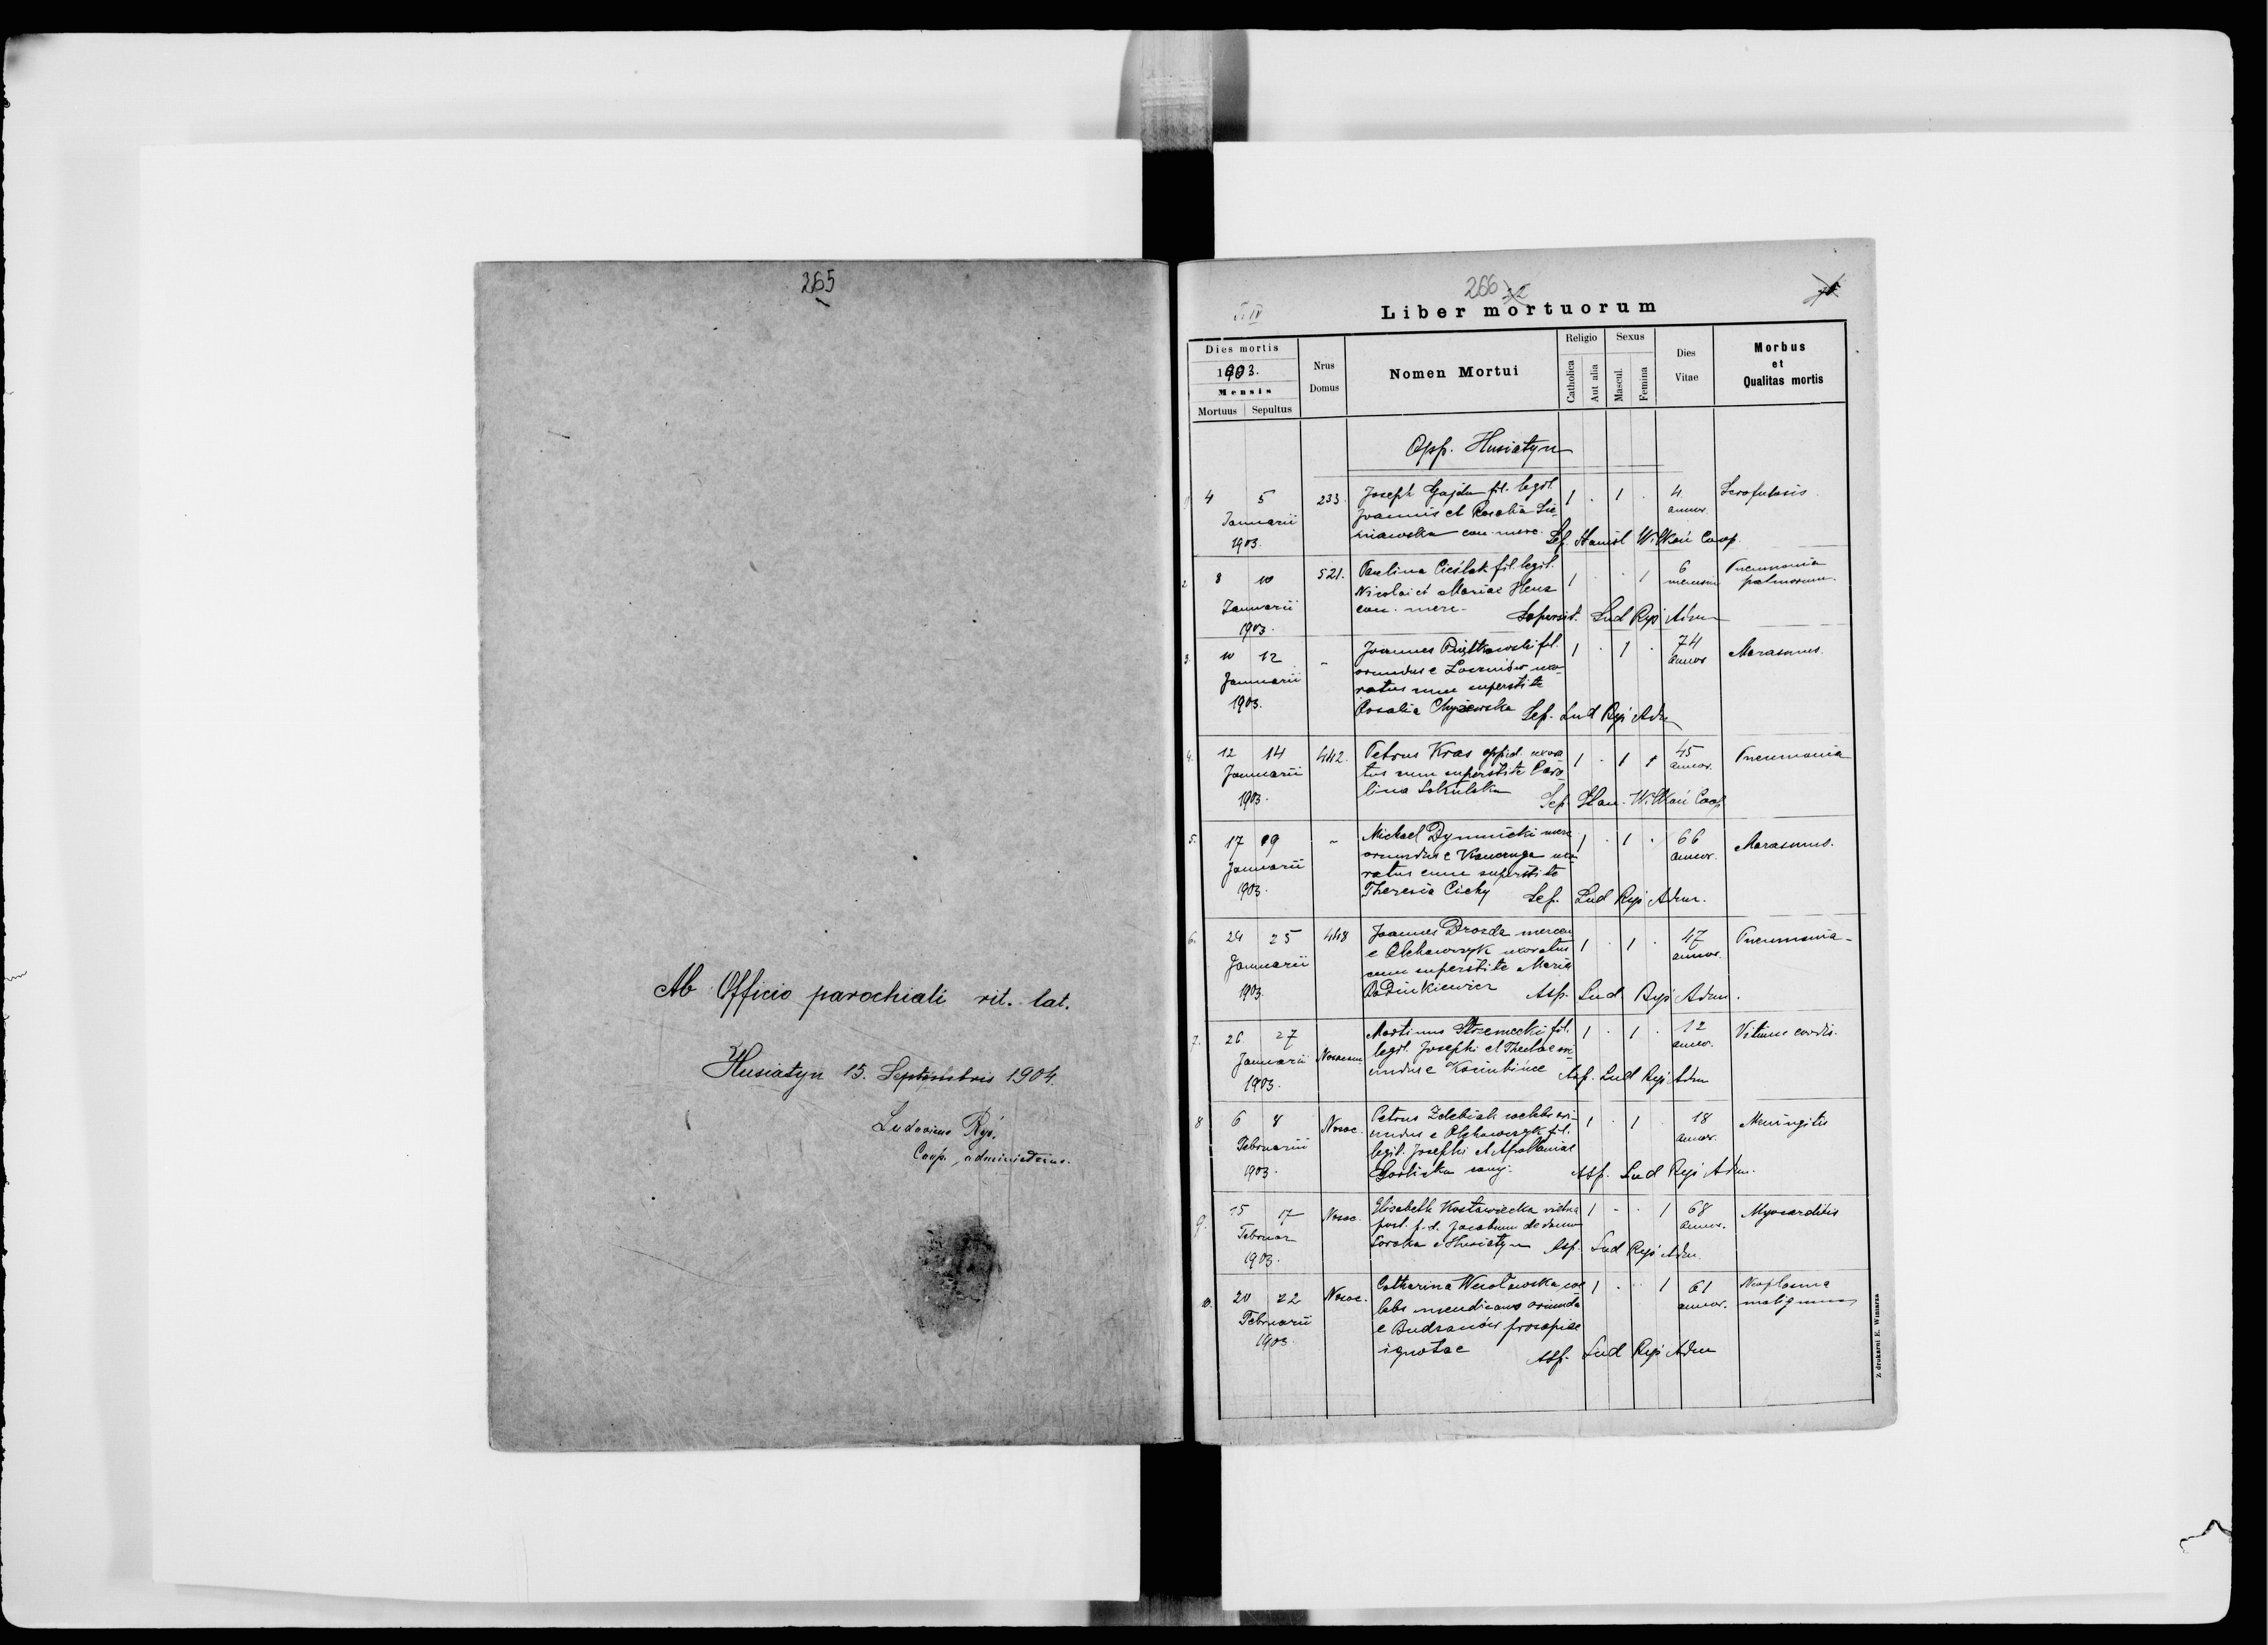 265
Ab Officio parochiali rit. lat.
Husiatyn 15. Septembris 1904.
Ludovicus Ryś.
Coop. administrans.
266
Liber mortuorum
Dies mortis
1903.
Mensis
Mortuus Sepultus
Nrus Domus
Nomen Mortui
Religio
Catholica Aut alia
Sexus
Mascul. Femina
Dies Vitae
Morbus et Qualitas mortis
Opp. Husiatyn
1 4 5 233. Joseph Gajda fil. legit. 1 . 1 . 4. Scrofulosis.
Januarii Joannis et Rosalia annor.
1903. Sep. Stanisl Wilkoń Coop.
2 8 10 521. Paulina Cieślak fil. legit. 1 . . 1 6 Pneumonia
Nicolai et Mariae mensium pulmonum.
Januarii Lud Ryś Adm
1903.
3. 10 12 - Joannes fil. 1 . 1 . 74 Marasmus.
Januarii oriundus e uxo- annor
ratus cum superstite
1903. Rosalia Chyżewska Sep. Lud Ryś Adm
4. 12 14 442. Petrus Kras oppid. uxora 1 . 1 45 Pneumonia
Januarii tus cum superstite Caro annor.
1903. lina Sokulska Sep. Stan. Wilkoń Coop
5. 17 19 - Michael Dymnicki merc 1 . 1 . 66 Marasmus.
Januarii oriundus e uxo annor.
ratus cum superstite
1903. Theresia Cichy Sep. Lud Ryś Adm.
6. 24 25 448 Joannes Drozda mercen 1 . 1 . 47 Pneumonia-
Januarii e Olchowczyk uxoratus annor.
cum superstite Maria
1903. Asp. Lud Ryś Adm.
7. 26 27 Martinus fil. 1 . 1 . 12 Vitium cordis.
Januarii legit. Josephi et annor.
1903. undus e Asp. Lud Ryś Adm
8 6 8 Nosoc. Petrus coelebs ori- 1 . 1 . 18 Meningitis
Februarii undus e Olchowczyk fil. annor.
legit. Josephi et Apolloniae
1903. Asp. Lud Ryś Adm.
9. 15 17 Nosoc. Elisabeth vidua 1 - . 1 68 Myocarditis
Februar post. p. d. Jacobum de domo annor.
1903. e Husiatyn Asp. Lud Ryś Adm
10. 20 22 Nosoc. Catharina coe 1 . . 1 61 Neoplasma
Februarii lebs mendicans oriunda annor. malignum
e Budzanów prosapiae
1903 ignotae Asp. Lud Ryś Adm
Z drukarni E. Winiarza